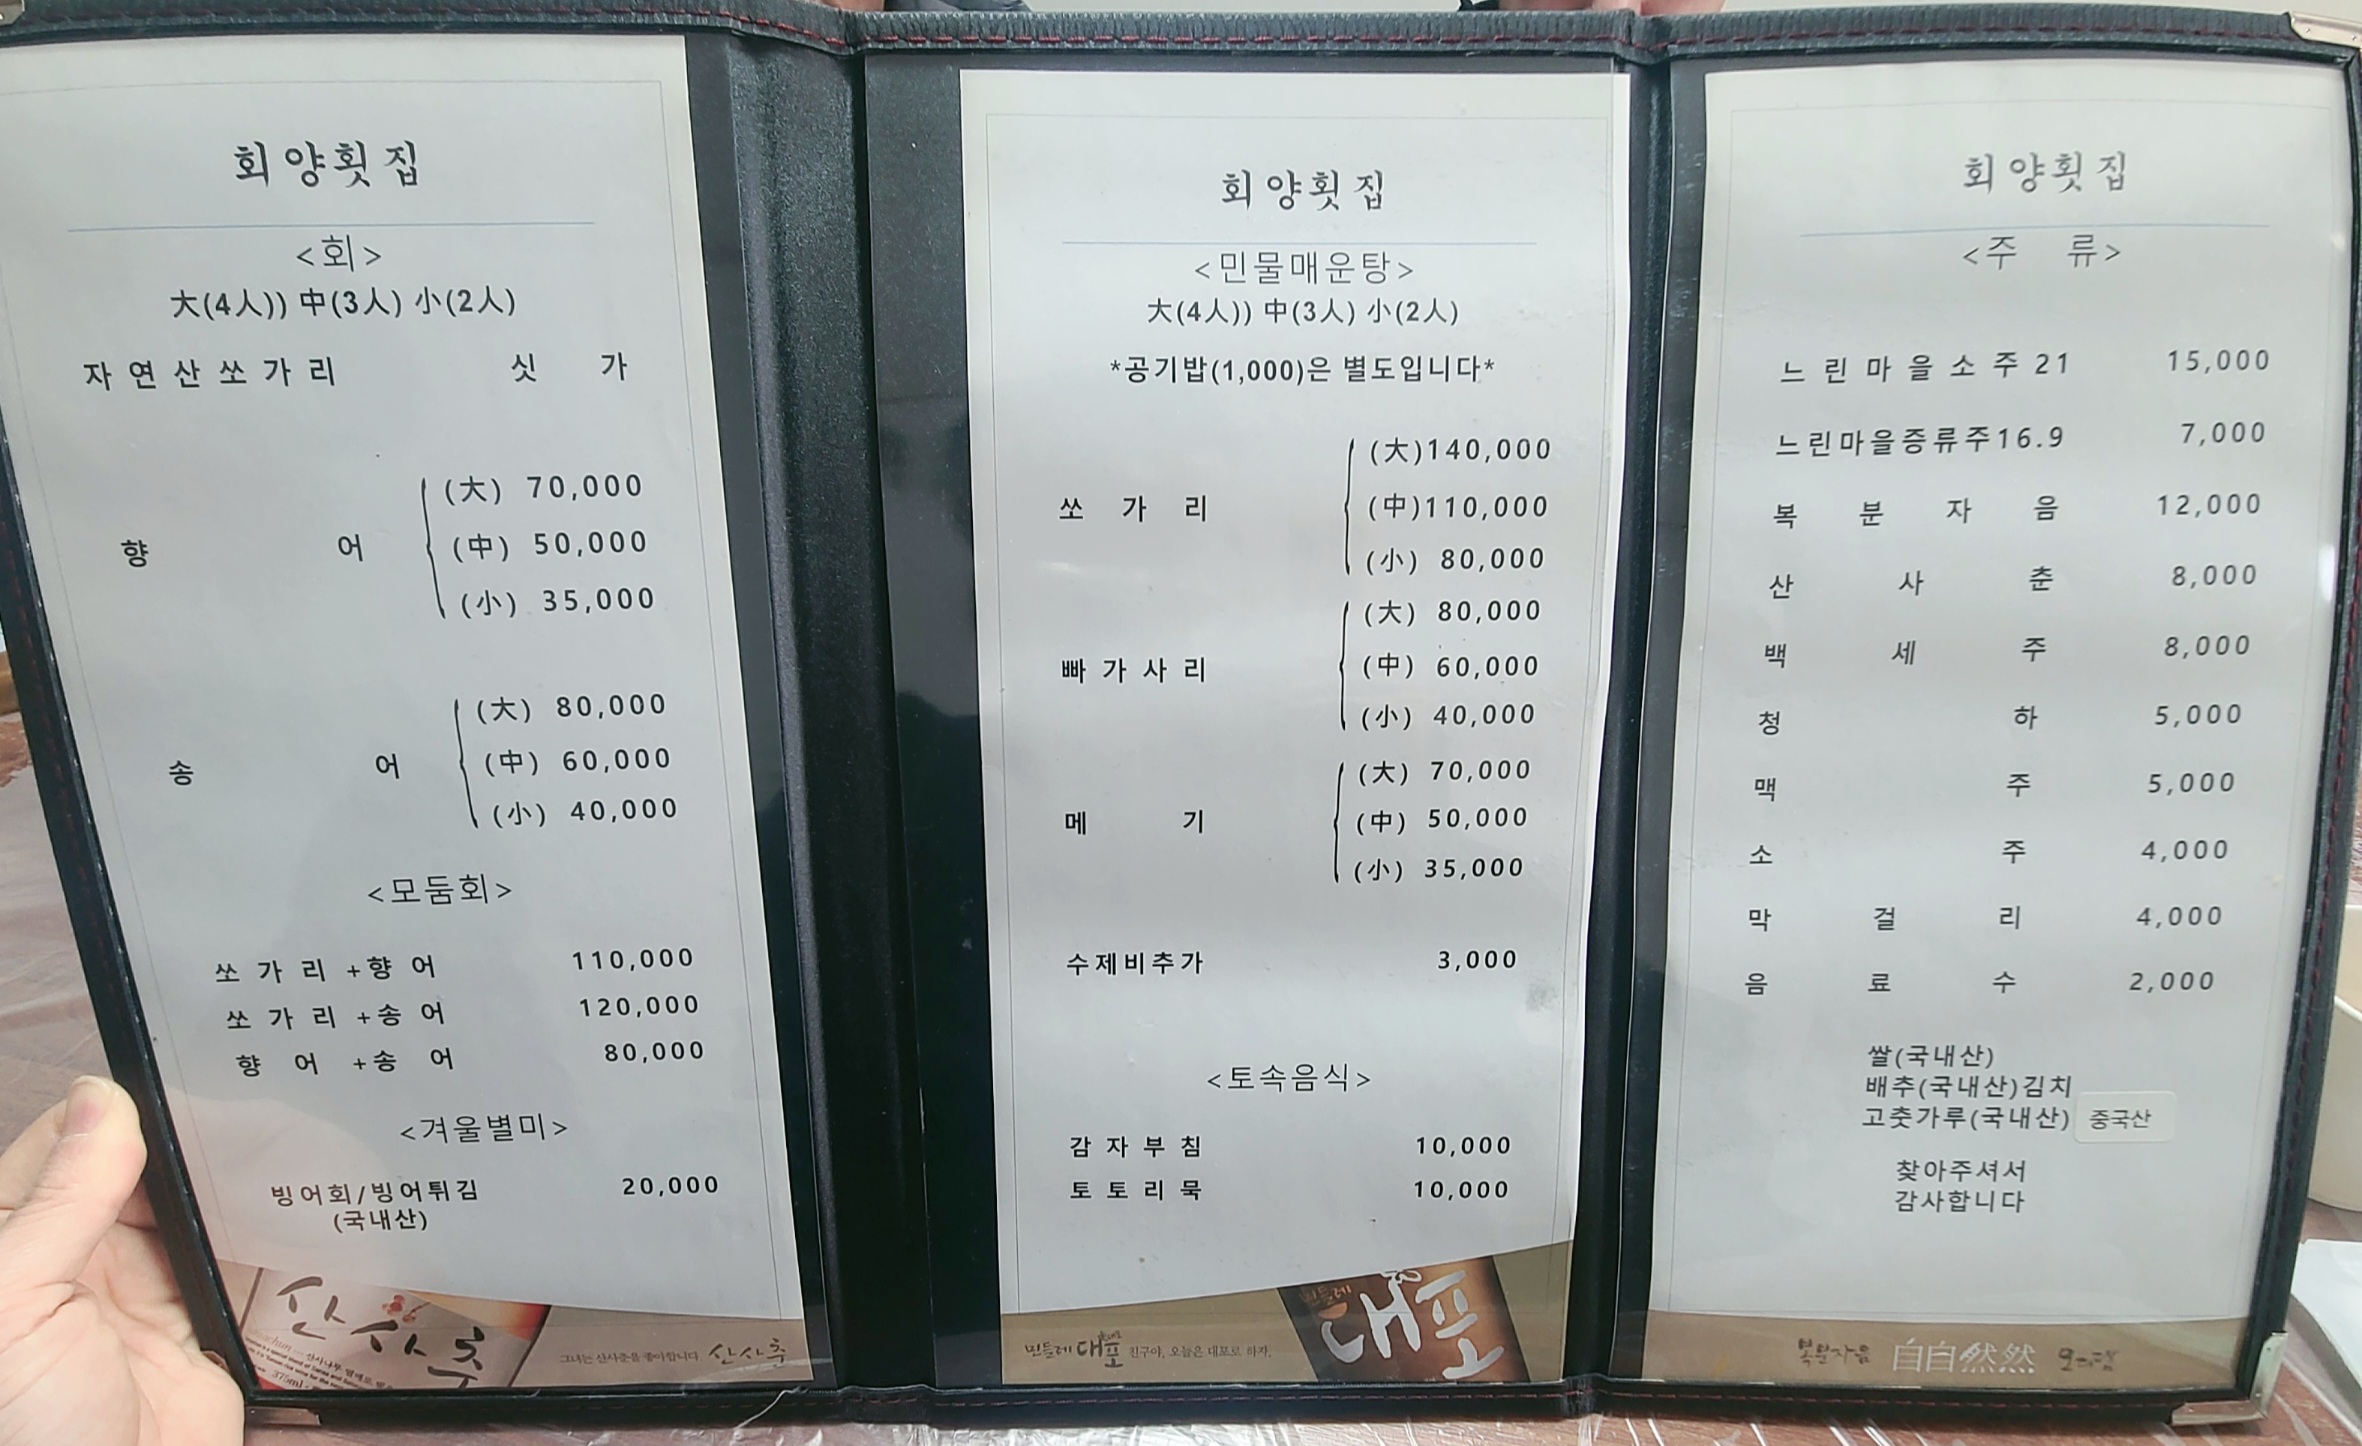 회양횟집
<회>
大(4人)) 中(3人) 小(2人)
자연산쏘가리 싯가
향어
(大) 70,000
(中) 50,000
(小) 35,000
송어
(大) 80,000
(中) 60,000
(小) 40,000
<모둠회>
쏘가리+향어 110,000
쏘가리+송어 120,000
향어+송어 80,000
<겨울별미>
빙어회/빙어튀김 20,000
(국내산)
산사춘
375ml
그녀는 산사춘을 좋아합니다 산사춘
회양횟집
<민물매운탕>
大(4人)) 中(3人) 小(2人)
*공기밥(1,000)은 별도입니다*
쏘가리
(大)140,000
(中)110,000
(小) 80,000
빠가사리
(大) 80,000
(中) 60,000
(小) 40,000
메기
(大) 70,000
(中) 50,000
(小) 35,000
수제비추가 3,000
<토속음식>
감자부침 10,000
토토리묵 10,000
민들레 대포
민들레 대포 친구야, 오늘은 대포로 하자.
회양횟집
<주류>
느린마을소주 21 15,000
느린마을증류주16.9 7,000
복분자음 12,000
산사춘 8,000
백세주 8,000
청하 5,000
맥주 5,000
소주 4,000
막걸리 4,000
음료수 2,000
쌀(국내산)
배추(국내산)김치
고춧가루(국내산) 중국산
찾아주셔서
감사합니다
복분자음 自自然然